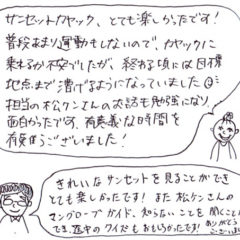 サンセットカヤック、とても楽しかったです!
普段あまり運動もしないので、カヤックに
乗れるか不安でしたが、終わる頃には目標
地点まで漕げるようになっていました
担当の松ケンさんのお話も勉強になり、
面白かったです。有意義な時間を
有難うございました!
きれいなサンセットを見ることができ
とても楽しかったです! また松ケンさんの
マングローブガイド、知らないことを聞くことが
でき、途中のクイズもおもしろかったです!
ありがとう
ございました